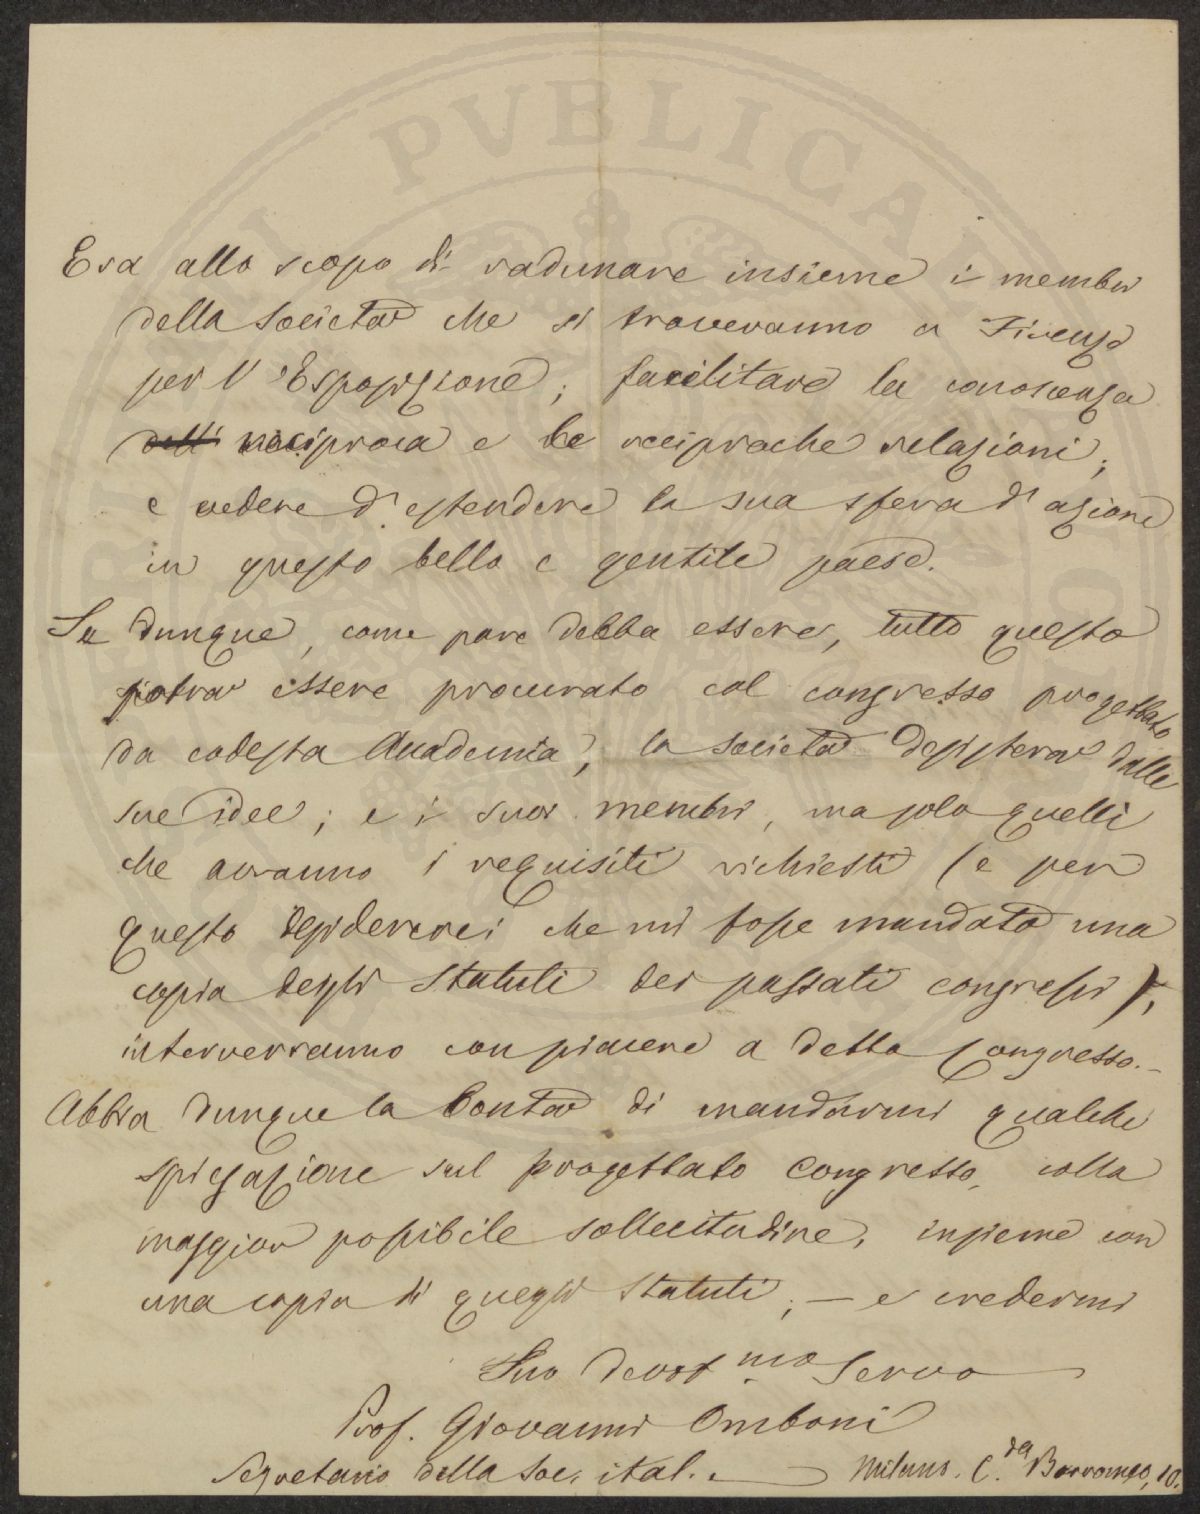 Era allo scopo di radunare insieme i membri
della Società che si troveranno a Firenze
per l'Esposizione; facilitare la conoscenza
dell' reciproca e le reciproche relazioni;
e vedere d'estendere la sua sfera d'azione
in questo bello e gentile paese.
Se dunque, come pare debba essere, tutto questo
potrà essere procurato col congresso progettato
da codesta Accademia, la società desisterà dalle
sue idee; e i suoi membri, ma solo quelli
che avranno i requisiti richiesti (e per
questo desidererei che mi fosse mandata una
copia degli Statuti dei passati congressi),
interverranno con piacere a detto Congresso.–
Abbia dunque la bontà di mandarmi qualche
spiegazione sul progettato Congresso, colla
maggior possibile sollecitudine, insieme con
una copia di quegli Statuti; — e credermi
Suo devot.mo Servo
Prof. Giovanni Omboni
Segretario della Soc. ital. — Milano. C.da Borromeo, 10.
PVBLICA